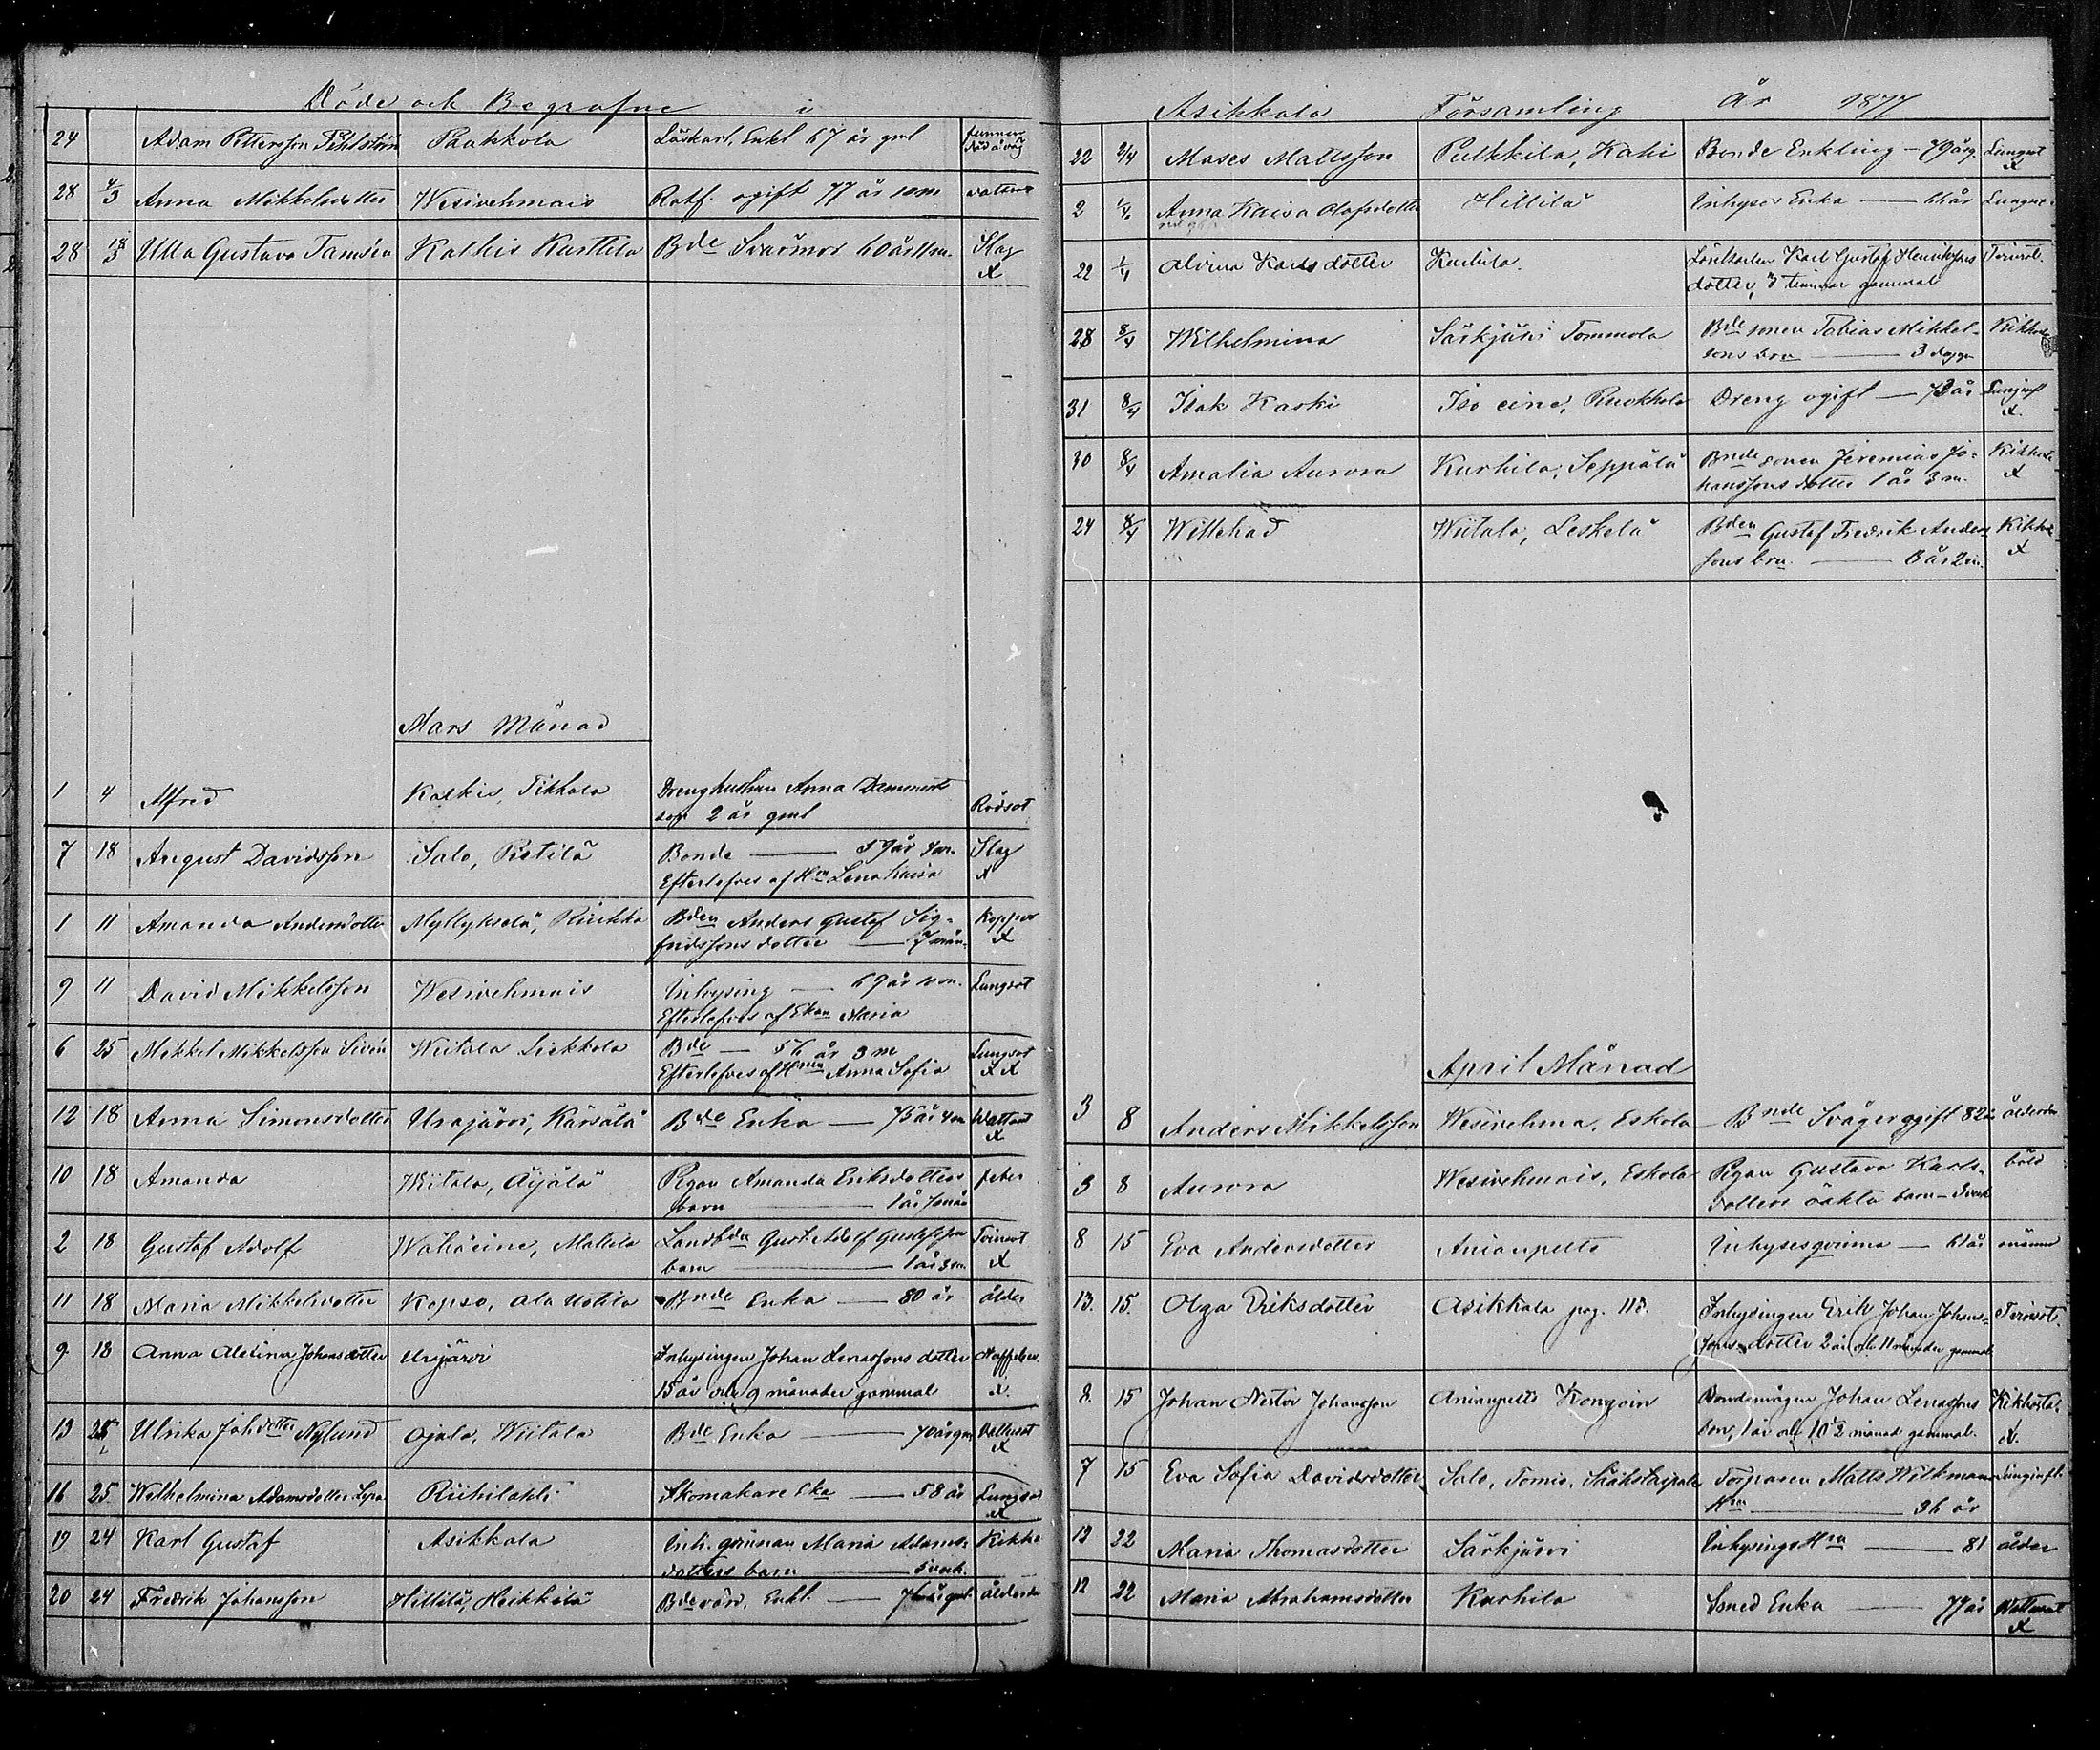 Döde och Begrafne i
24 Adam Pettersson Pihlström Paakkola Löskarl, Enkl 67 år gml funnen död å väg
28 4/3 Anna Mikkelsdotter Wesivehmais Rotf. ogift 77 år 10 m vattusot
28 18/3 Ulla Gustava Tamsén Kalkis Karttila Bde Svärmor 60 år 11 m. Slag X
Mars Månad
1 4 Alfred Kalkis, Tikkala Dränghustrun Anna
son 2 år gml Rödsot
7 18 August Davidsson Salo, Pietilä Bonde — 59 år 4 m. Slag
Efterlefves af H:n Lena Kaisa X
1 11 Amanda Andersdotter Myllykselä, Riukka Bden Anders Gustaf Sig-
fridssons dotter — 7 mån. Koppor X
9 11 David Mikkelsson Wesivehmais Inhysing — 69 år 10 m. Lungsot
Efterlefves af Ekan Maria
6 25 Mikkel Mikkelsson Sivén Wiitala Liekkola Bde — 56 år 3 m Lungsot
Efterlefves af Hrun Anna Sofia X X
12 18 Anna Simonsdotter Urajärvi, Kärsälä Bde Enka — 75 år 4 m Wattusot X
10 18 Amanda Wiitala, Äijälä Pigan Amanda Eriksdotters feber
barn — 1 år 7 mån
2 18 Gustaf Adolf Wähäeine, Mattila Landbdn Gust. Adolf Gustafsson Tvinsot
barn — 1 år 3 m. X
11 18 Maria Mikkelsdotter Kopso, Ala Uotila Bnde Enka — 80 år ålder
9 18 Anna Alexina Johansdotter Urajärvi Inhysingen Johan Lenassons dotter
15 år och 9 månader gammal X.
13 25 Ulrika Johdotter Nylund Ojala, Wiitala Bde Enka — 70 år gm. Vattusot X
16 25 Wilhelmina Adamsdotter Lyra Riihilahti Skomakare Eka — 58 år Lungsot X
19 24 Karl Gustaf Asikkala Inh. qvinnan Maria Adams- Kikho
dotters barn — 5 veck.
20 24 Fredrik Johansson Hillilä, Heikkilä Bde värd. Enkl. — 76 år gml. ålderdo
Asikkala Församling År 1877
22 2/4 Moses Mattsson Pulkkila, Kahi Bonde Enkling — 79 år g. Lungsot X
2 1/4 Anna Kaisa Olofsdotter Hillilä Inhyses Enka — 66 år Lungin.
22 1/4 Alvina Karlsdotter Kurhila. Löskarlen Karl Gustaf Henrikssons Tvinsot.
dotter, 3 timmar gammal
28 8/4 Wilhelmina Särkjärvi Tommola Bde sonen Tobias Mikkels- Kikhosta
sons brn — 3 dygn
31 8/4 Isak Kaski Iso eine, Ruokkola Dreng ogift — 73 år Lunginfl X.
30 8/4 Amalia Aurora Kurhila, Seppälä Bnde sonen Jeremias Jo- Kikhosta
hanssons dotter 1 år 3 m. X
24 8/4 Willehad Wiitala, Leskelä Bden Gustaf Fredrik Anders- Kikho
sons brn. — 3 år 2 m. X
April Månad
3 8 Anders Mikkelsson Wesivehma, Eskola Bnde Svåger ogift 82 år ålderdm
3 8 Aurora Wesivehmais, Eskola Pigan Gustava Karls- böld
dotters oäkta barn — 3 veck
8 15 Eva Andersdotter Anianpelto Inhysesqvinna — 61 år
13. 15. Olga Eriksdotter Asikkala pag. 118. Inhysingen Erik Johan Johans- Tvinsot.
sons dotter 2 år och 11 månader gammal
8. 15 Johan Nestor Johansson Anianpelto Bondemågen Johan Lenassons Kikhosta
son, 1 år och 10 1/2 månad gammal. X.
7 15 Eva Sofia Davidsdotter Salo, Tomio, Säähskaipale Torparen Matts Wilkmans Lunginfl.
Hru — 36 år
12 22 Maria Thomasdotter Särkjärvi Inhysings Hru — 81 ålder
12 22 Maria Abrahamsdotter Kurhila Smed Enka — 77 år Wattusot X